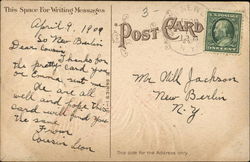 This Space For Writing Messages
3-
POST CARD
April 9, 1909
So New Berlin
Dear Cousin,
Thanks for
the pretty card you
or Emma sent
We are all
well and hope this
card will find you
the same
From
Cousin Leon
Mr Will Jackson
New Berlin
N. Y.
This side for the Address only.